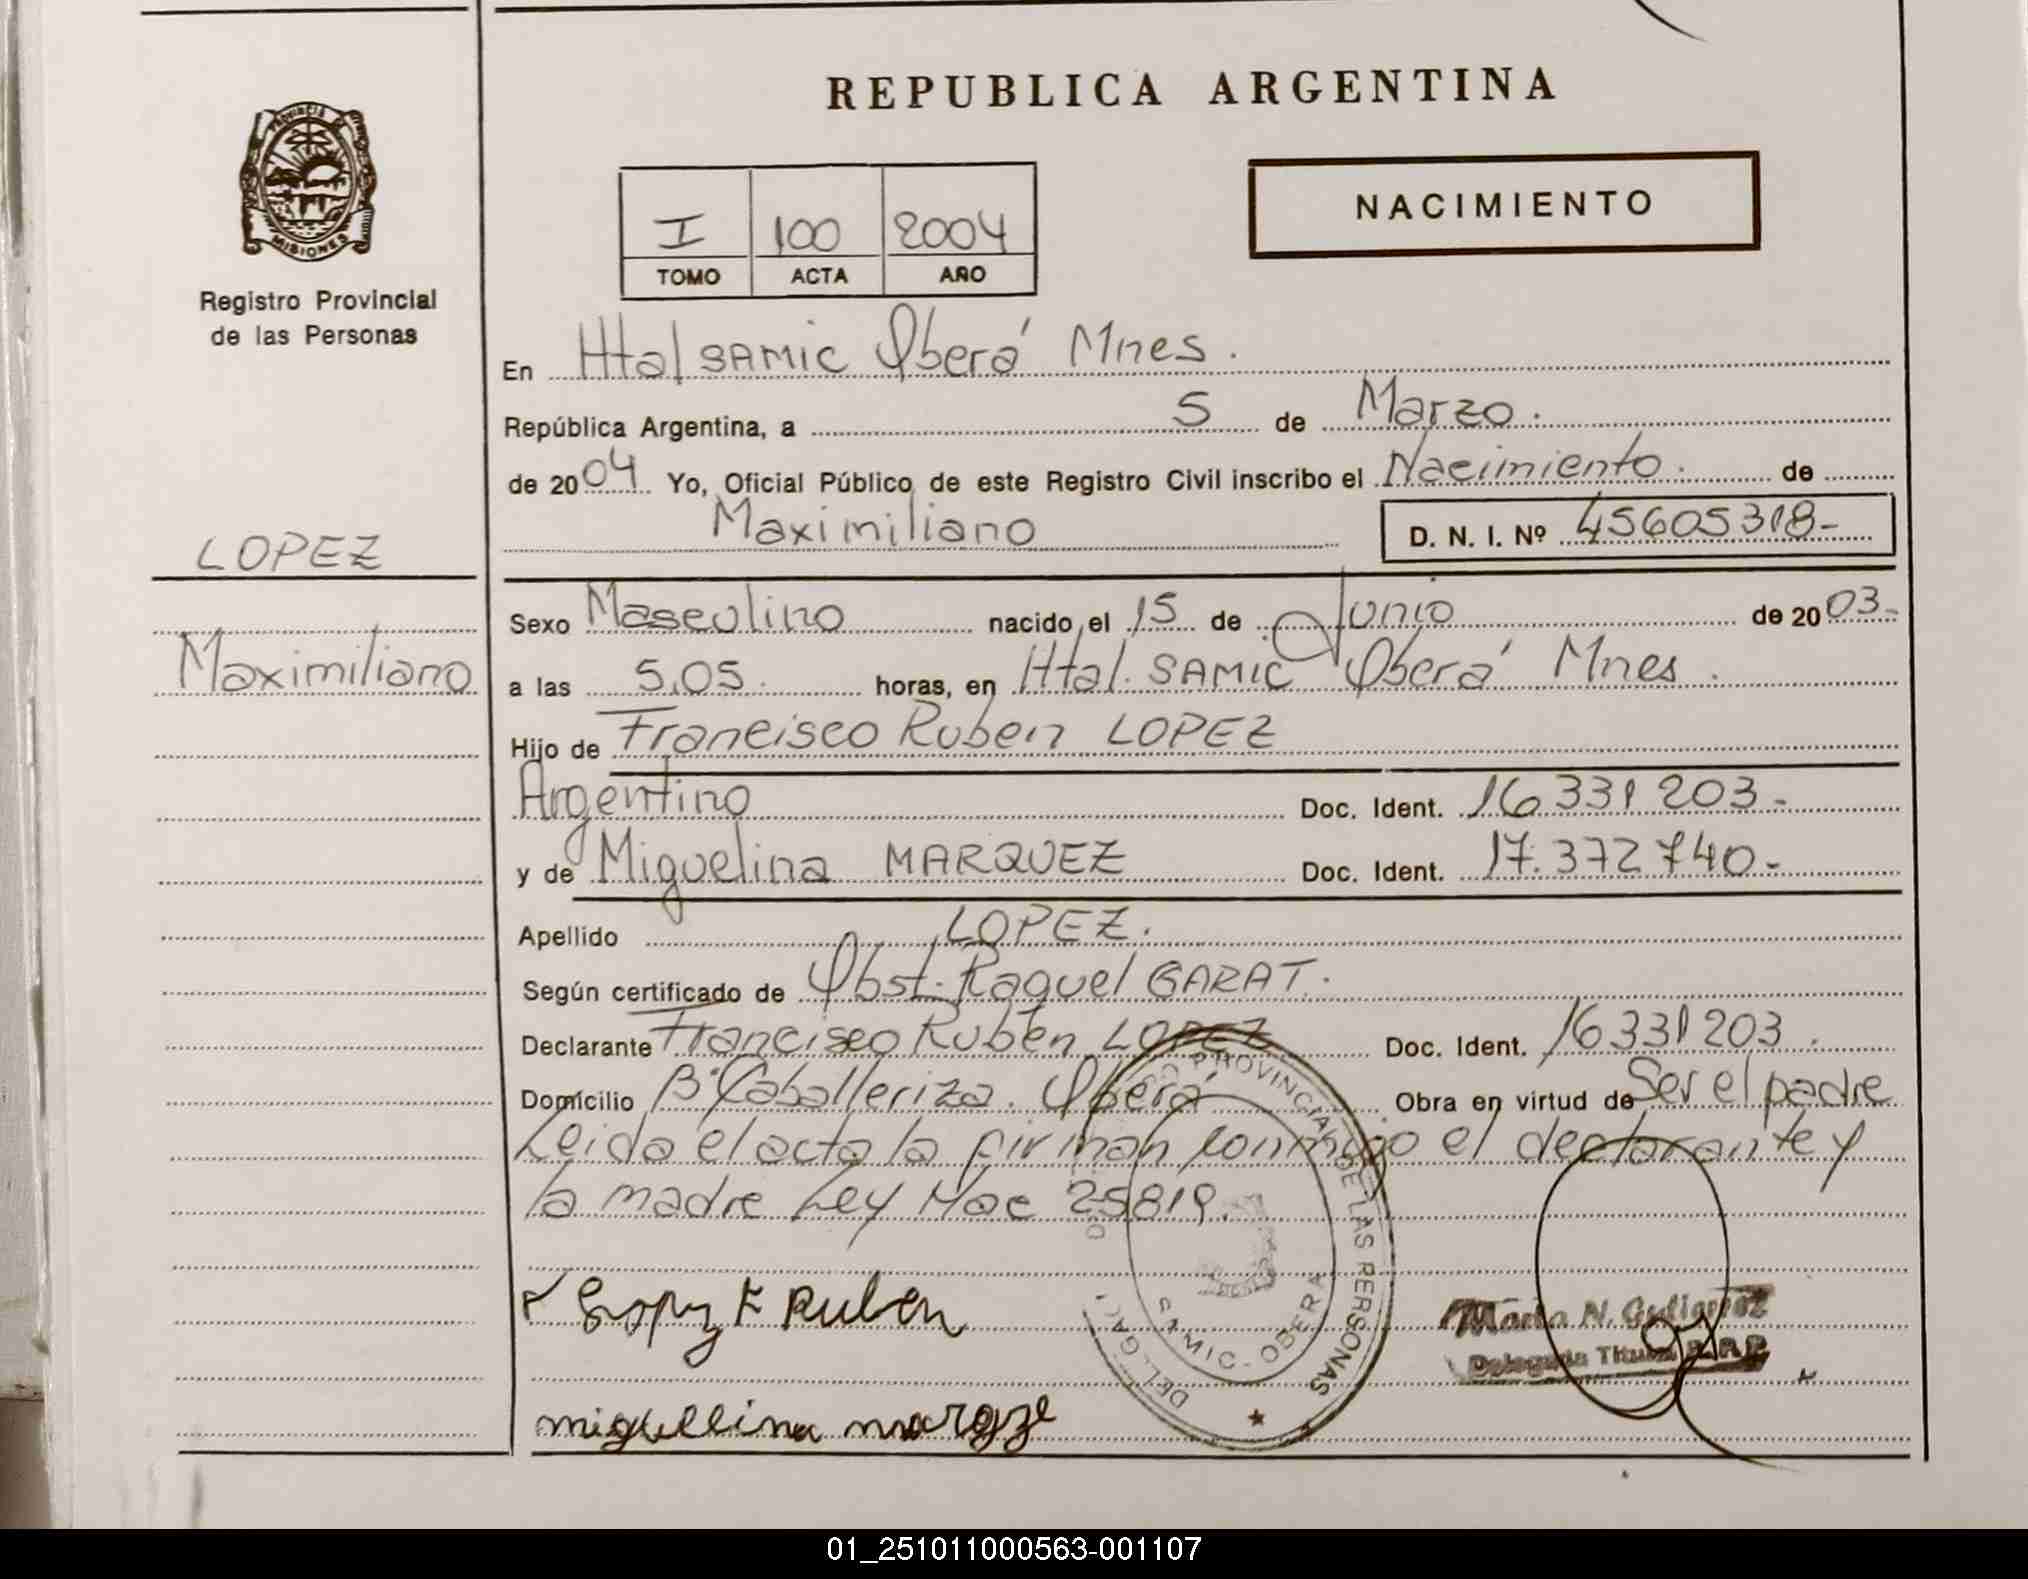 REPUBLICA ARGENTINA
PROVINCIA DE
MISIONES
Registro Provincial
de las Personas
I 100 2004
TOMO ACTA AÑO
NACIMIENTO
En Htal SAMIC Oberá Mnes.
República Argentina, a 5 de Marzo.
de 2004 Yo, Oficial Público de este Registro Civil inscribo el Nacimiento. de
Maximiliano D. N. I. Nº 45605318-
LOPEZ
Maximiliano
Sexo Masculino nacido el 15 de Junio de 2003-
a las 5,05. horas, en Htal. SAMIC Oberá Mnes.
Hijo de Francisco Ruben LOPEZ
Argentino Doc. Ident. 16331203-
y de Miguelina MARQUEZ Doc. Ident. 17.372740-
Apellido LOPEZ.
Según certificado de Obst. Raquel GARAT.
Declarante Francisco Rubén LOPEZ Doc. Ident. 16331203.
Domicilio Bº Caballeriza. Oberá Obra en virtud de Ser el padre
Leida el acta la firman conmigo el declarante y
la madre Ley Nac 25819.
PROVINCIAL DE LAS PERSONAS
SAMIC - OBERA
Lopez F Ruben
Maria N. Gutierrez
Delegada Titular R.P.P.
miguelina marqze
01_251011000563-001107